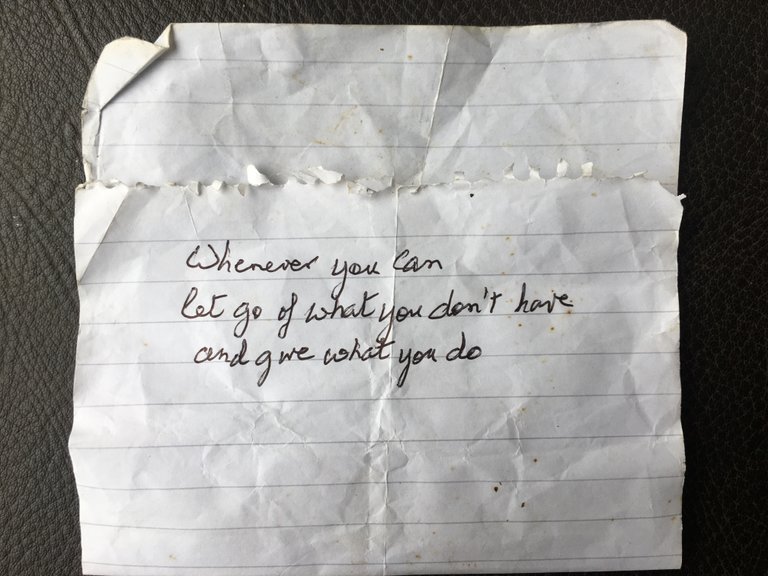 Whenever you can
let go of what you don't have
and give what you do